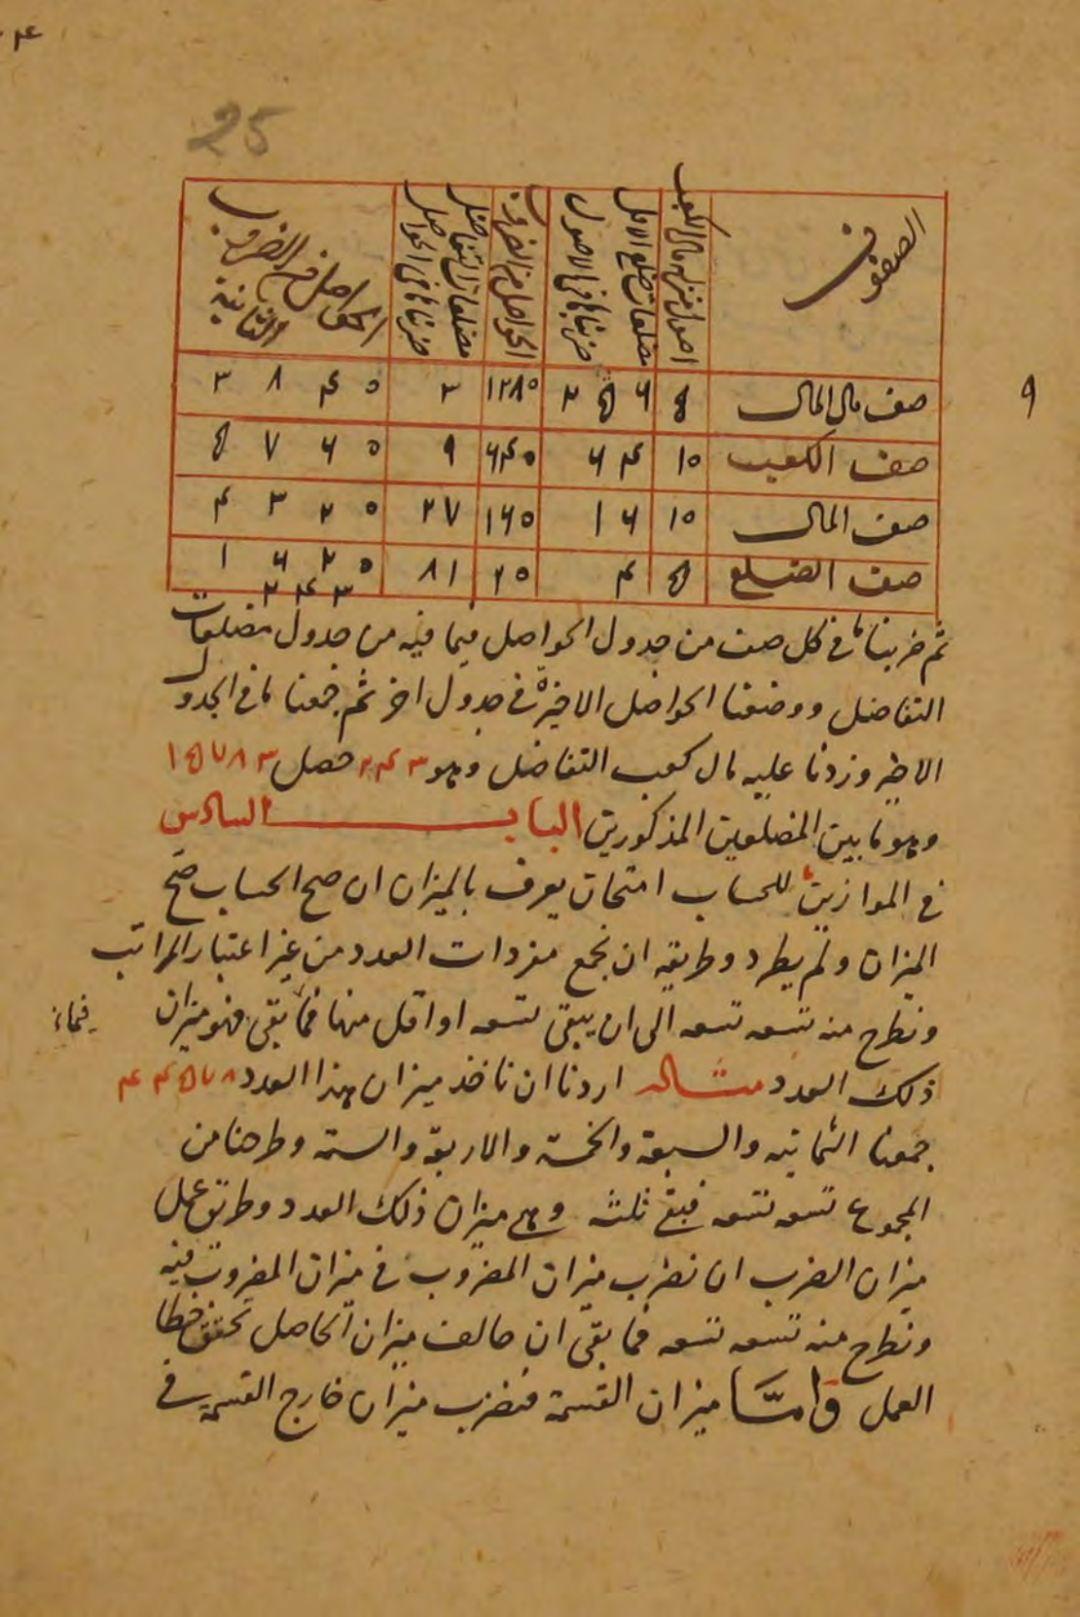 25
الصفوف | اصول منزلة مال الكعب | مضلعات ضلع الاقل ضربناها في الاصول | الحواصل من الضروب | مضلعات التفاضل ضربناها في الحواصل | الحواصل من الضروب الثانية
صف مال المال | ۵ | ۲۵۶ | ۱۲۸۰ | ۳ | ۳۸۴۰
صف الكعب | ۱۰ | ۶۴ | ۶۴۰ | ۹ | ۵۷۶۰
صف المال | ۱۰ | ۱۶ | ۱۶۰ | ۲۷ | ۴۳۲۰
صف الضلع | ۵ | ۴ | ۲۰ | ۸۱ | ۱۶۲۰
۲۴۳
۹
ثم ضربنا ما في كل صف من جدول الحواصل فيما فيه من جدول مضلعات
التفاضل ووضعنا الحواصل الاخيرة في جدول اخر ثم جمعنا ما في الجدول
الاخير وزدنا عليه مال كعب التفاضل وهو ۲۴۳ حصل ۱۵۷۸۳
وهو ما بين المضلعين المذكورين الباب السادس
في الموازين للحساب امتحان يعرف بالميزان ان صح الحساب صح
الميزان ولم يطرد وطريقه ان نجمع مفردات العدد من غير اعتبار المراتب
ونطرح منه تسعه تسعه الى ان يبقى تسعه او اقل منها فما بقى فهو ميزان
ذلك العدد مثاله اردنا ان ناخذ ميزان هذا العدد ۴۴۵۷۸
جمعنا الثمانيه والسبعة والخمسة والاربعة والستة وطرحنا من
المجموع تسعه تسعه فبقى ثلثه وهي ميزان ذلك العدد وطريق عمل
ميزان الضرب ان نضرب ميزان المضروب في ميزان المضروب فيه
ونطرح منه تسعه تسعه فما بقى ان خالف ميزان الحاصل تحقق خطا
العمل واما ميزان القسمة فنضرب ميزان خارج القسمة في